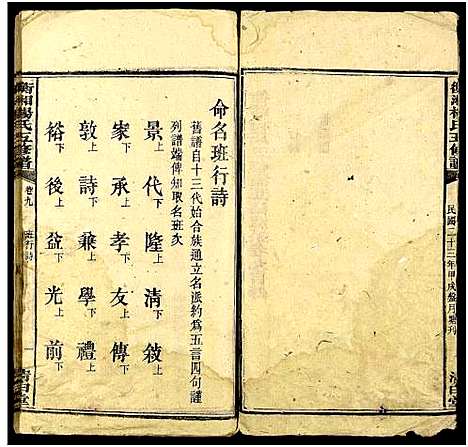 衡湘楊氏五修譜
民國二十三年甲戌
清白堂
命名班行詩
舊譜自十三代始合族通立名派約為五言四句謹
列譜端俾知取名班次
景上代下隆上清下敘上
家下承上孝下友上傳下
敦上詩下兼上學下禮上
裕下後上益下光上前下
衡湘楊氏五修譜
卷九
班行詩
一
清白堂